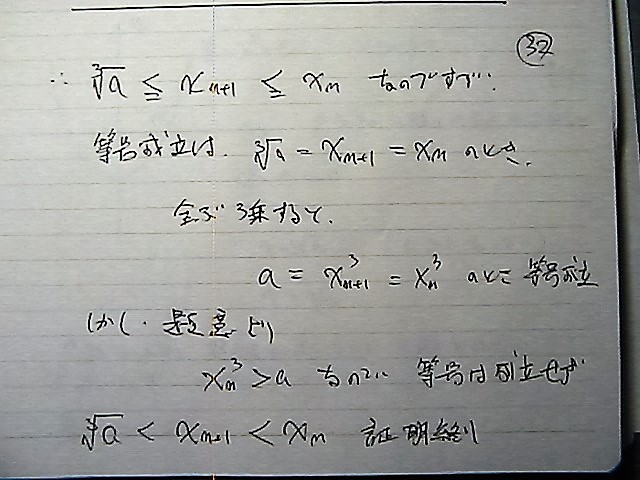 ㊲
∴ ∛a ≦ x_{n+1} ≦ x_n なのですが.
等号成立は. ∛a = x_{n+1} = x_n のとき.
全部3乗すると.
a = x_{n+1}^3 = x_n^3 のとき 等号成立
しかし. 題意より
x_n^3 > a なので. 等号は成立せず
∛a < x_{n+1} < x_n 証明終り